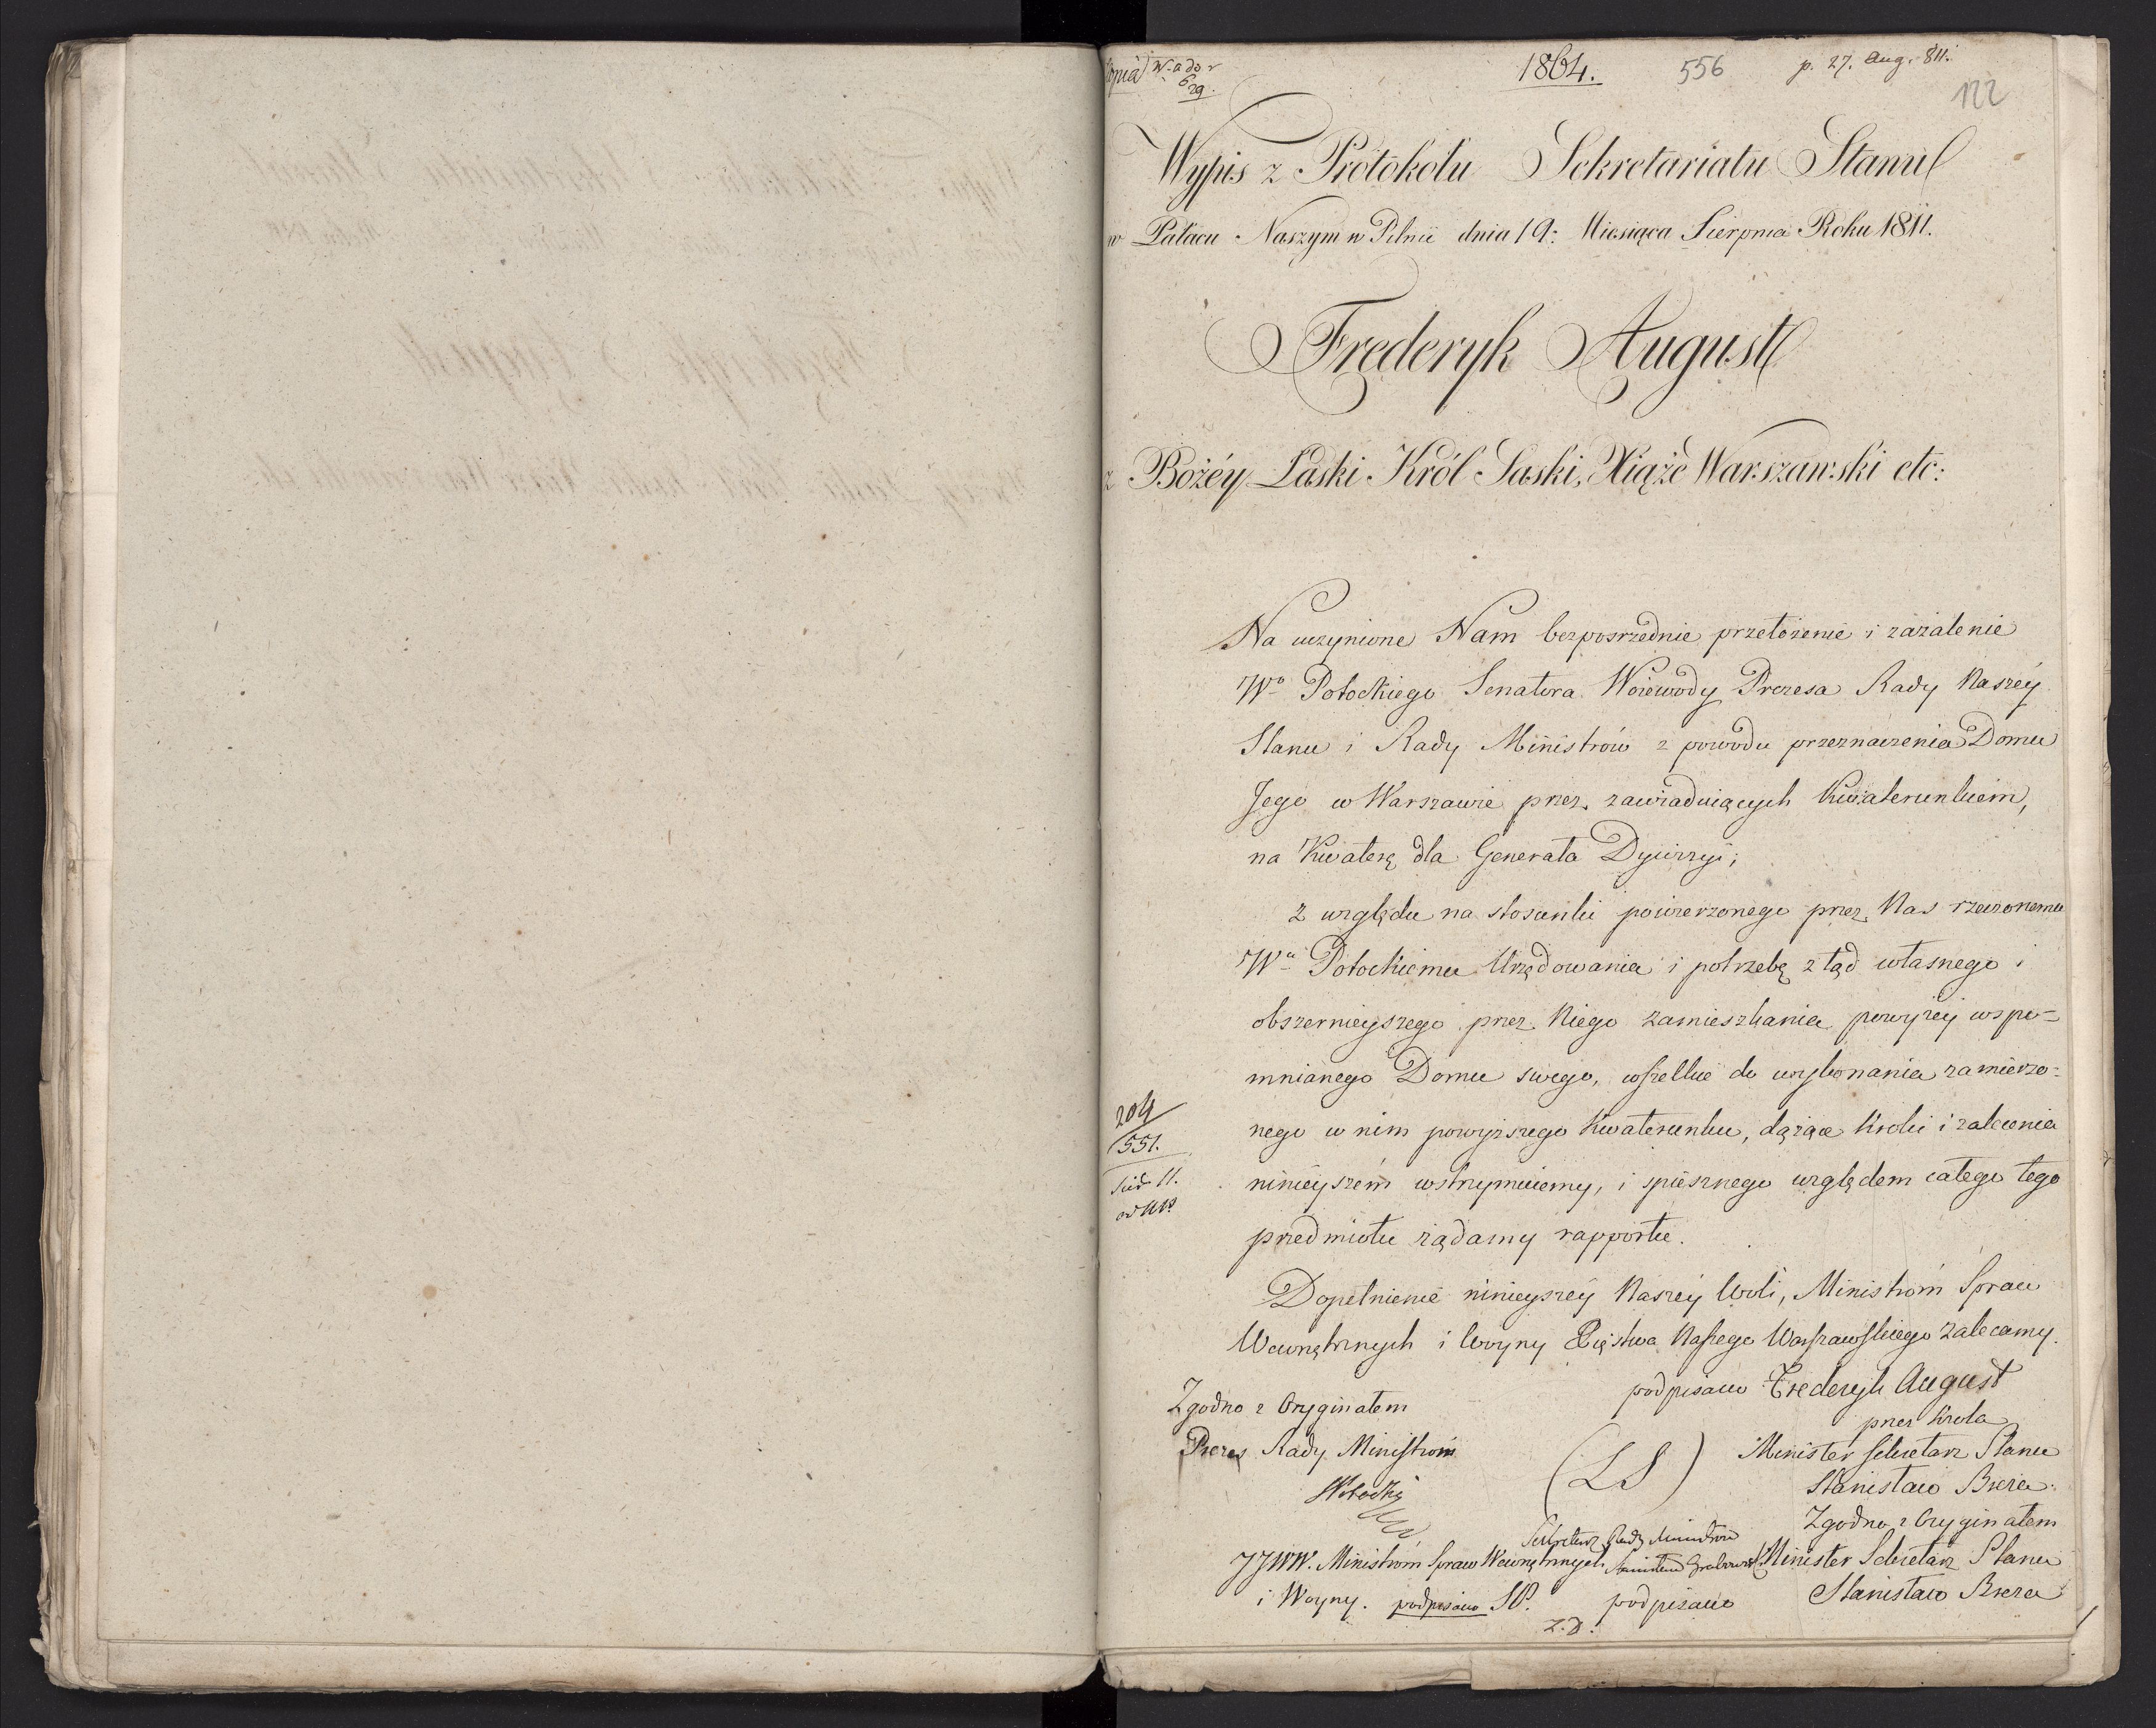 Kopia
1864. 556 p. 27. Aug. 811.
122
Wypis z Protokołu Sekretariatu Stanu
w Pałacu Naszym w Pilnic dnia 19: Miesiąca Sierpnia Roku 1811.
Frederyk August
z Bożéy Łaski Król Saski, Xiąże Warszawski etc:
Na uczynione Nam bezposrzednie przełożenie i zażalenie
Wo Potockiego Senatora Woiewody Prezesa Rady Naszéy
Stanu i Rady Ministrów z powodu przeznaczenia Domu
Jego w Warszawie przez zawiaduiących Kwaterunkiem,
na Kwaterę dla Generała Dywizyi;
z względu na stosunki powierzonego przez Nas rzeczonemu
Wu Potockiemu Urzędowania i potrzebę ztąd własnego i
obszernieyszego przez Niego zamieszkania powyżéy wspo=
mnianego Domu swego, wszelkie do wykonania zamierzo=
204
nego w nim powyższego Kwaterunku, dążące kroki i zalecenia
551.
ninieyszém wstrzymuiemy, i spiesznego względem całego tego
przedmiotu żądamy rapportu.
Dopełnienie ninieyszéy Naszéy Woli, Ministrom Spraw
Wewnętrznych i Woyny Xięstwa Naszego Warszawskiego zalecamy.
podpisano Frederyk August
Zgodno z Oryginałem
przez Krola
Prezes Rady Ministrów
(LS)
Minister Sekretarz Stanu
Stanisław Breza.
Zgodno z Oryginałem
Sekretarz Rady Ministrów
JJWW. Ministrom Spraw Wewnętrznych
Minister Sekretarz Stanu
i Woyny. podpisano SP. podpisano
Stanisław Breza
Z.D.